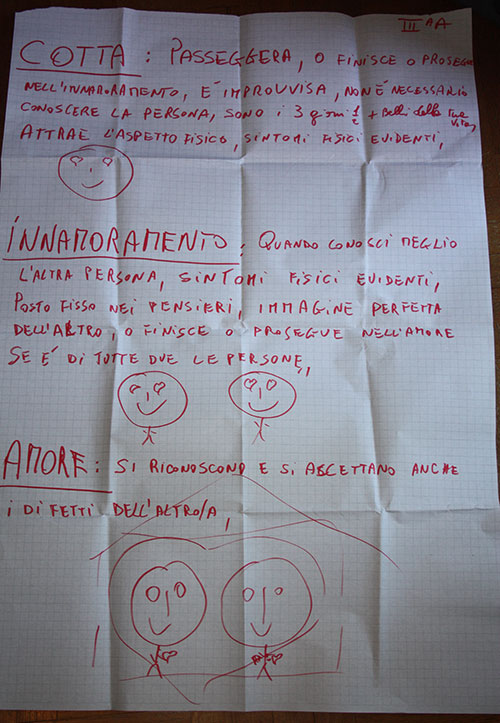 III AA
COTTA: PASSEGGERA, O FINISCE O PROSEGUE
NELL'INNAMORAMENTO, E' IMPROVVISA, NON È NECESSARIO
CONOSCERE LA PERSONA, SONO i 3 giorni 1/2 + Belli della Tua Vita,
ATTRAE L'ASPETTO FISICO, SINTOMI FISICI EVIDENTI,
INNAMORAMENTO: QUANDO CONOSCI MEGLIO
L'ALTRA PERSONA, SINTOMI FISICI EVIDENTI,
POSTO FISSO NEI PENSIERI, IMMAGINE PERFETTA
DELL'ALTRO, O FINISCE O PROSEGUE NELL'AMORE
SE E' DI TUTTE DUE LE PERSONE,
AMORE: SI RICONOSCONO E SI ACCETTANO ANCHE
i DIFETTI DELL'ALTRO/A,